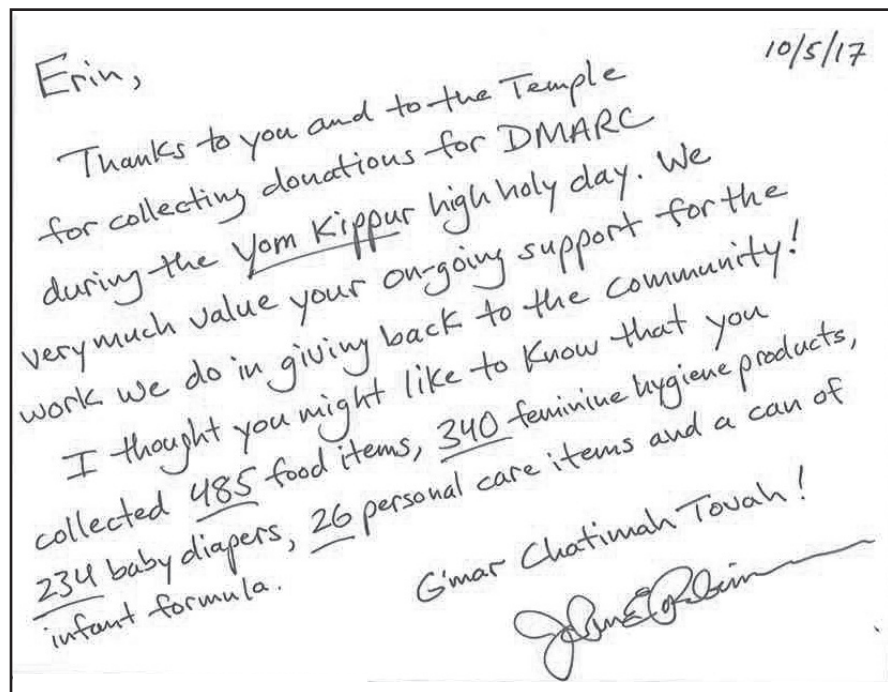 10/5/17
Erin,
Thanks to you and to the Temple
for collecting donations for DMARC
during the Yom Kippur high holy day. We
very much value your on-going support for the
work we do in giving back to the community!
I thought you might like to know that you
collected 485 food items, 340 feminine hygiene products,
234 baby diapers, 26 personal care items and a can of
infant formula.
G'mar Chatimah Tovah!